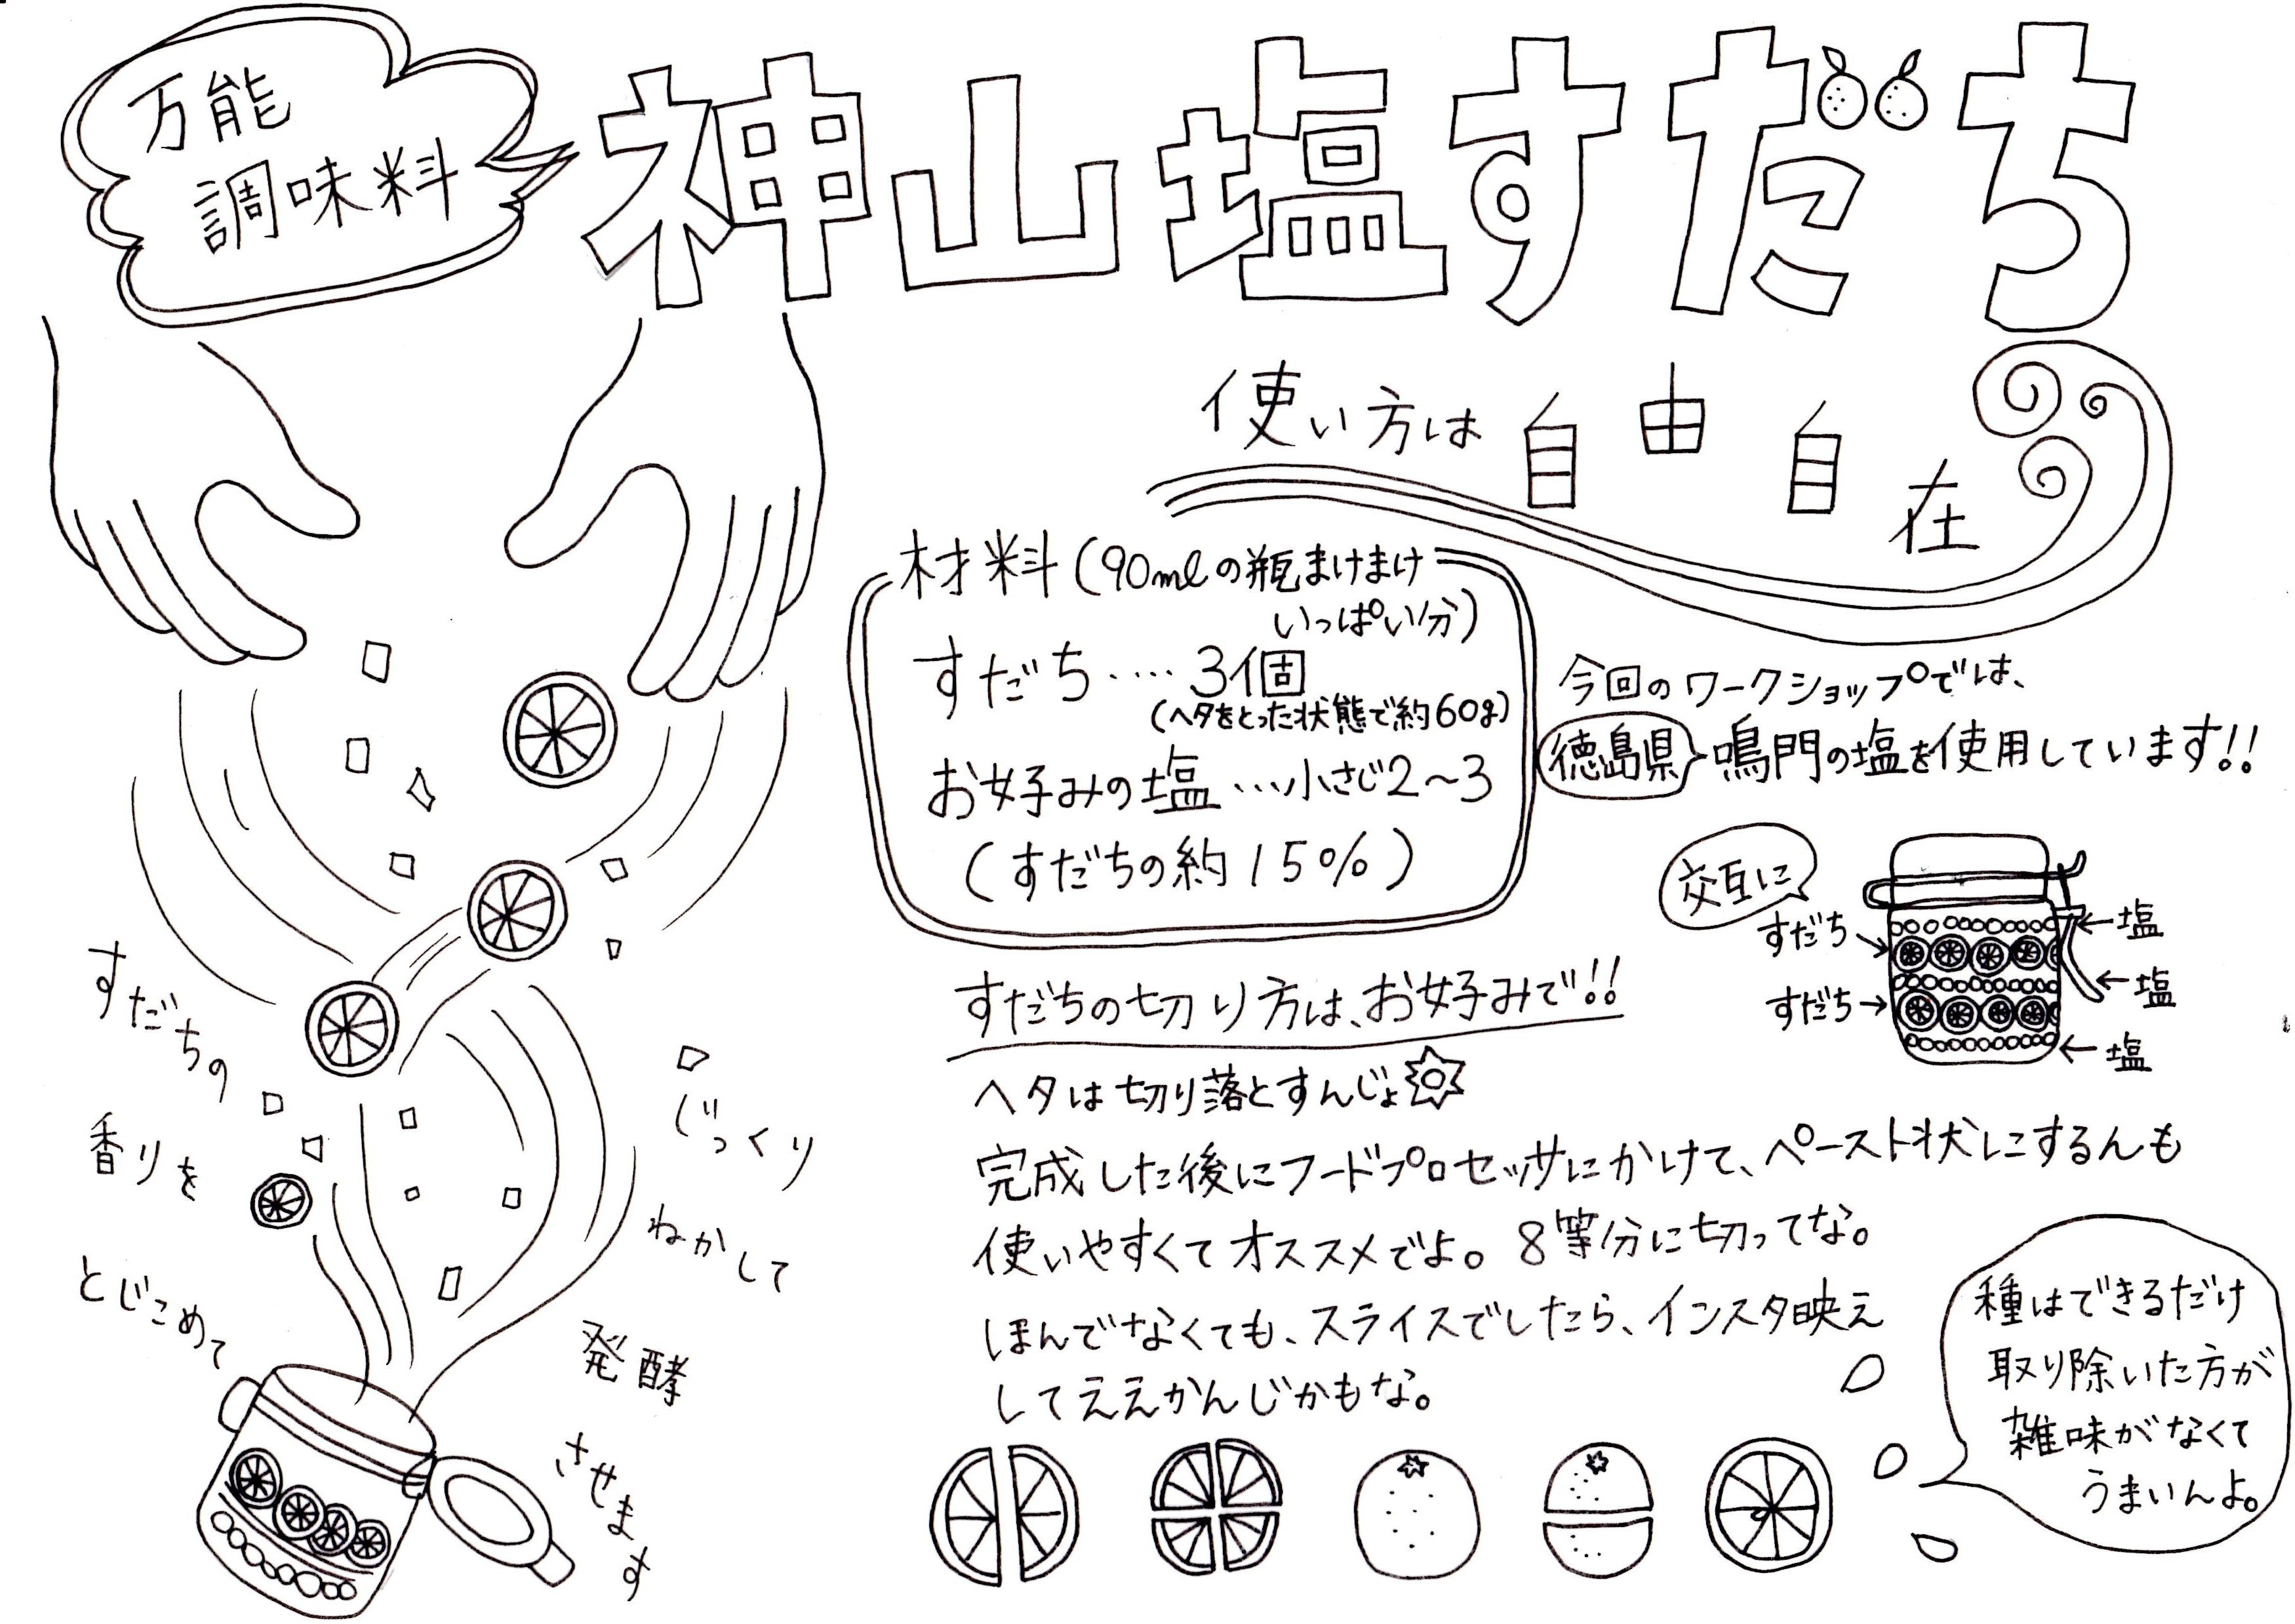 万能
調味料
神山塩すだち
使い方は自由自在
材料(90mlの瓶まけまけ
いっぱい分)
すだち‥‥3個
(ヘタをとった状態で約60g)
お好みの塩…小さじ2〜3
(すだちの約15%)
今回のワークショップでは、
徳島県
鳴門の塩を使用しています!!
交互に
すだち
すだち
塩
塩
塩
すだちの
香りを
とじこめて
じっくり
ねかして
発酵
させます
すだちの切り方は、お好みで!!
ヘタは切り落とすんじょ
完成した後にフードプロセッサにかけて、ペースト状にするんも
使いやすくてオススメでよ。8等分に切ってな。
ほんでなくても、スライスでしたら、インスタ映え
してええかんじかもな。
種はできるだけ
取り除いた方が
雑味がなくて
うまいんよ。